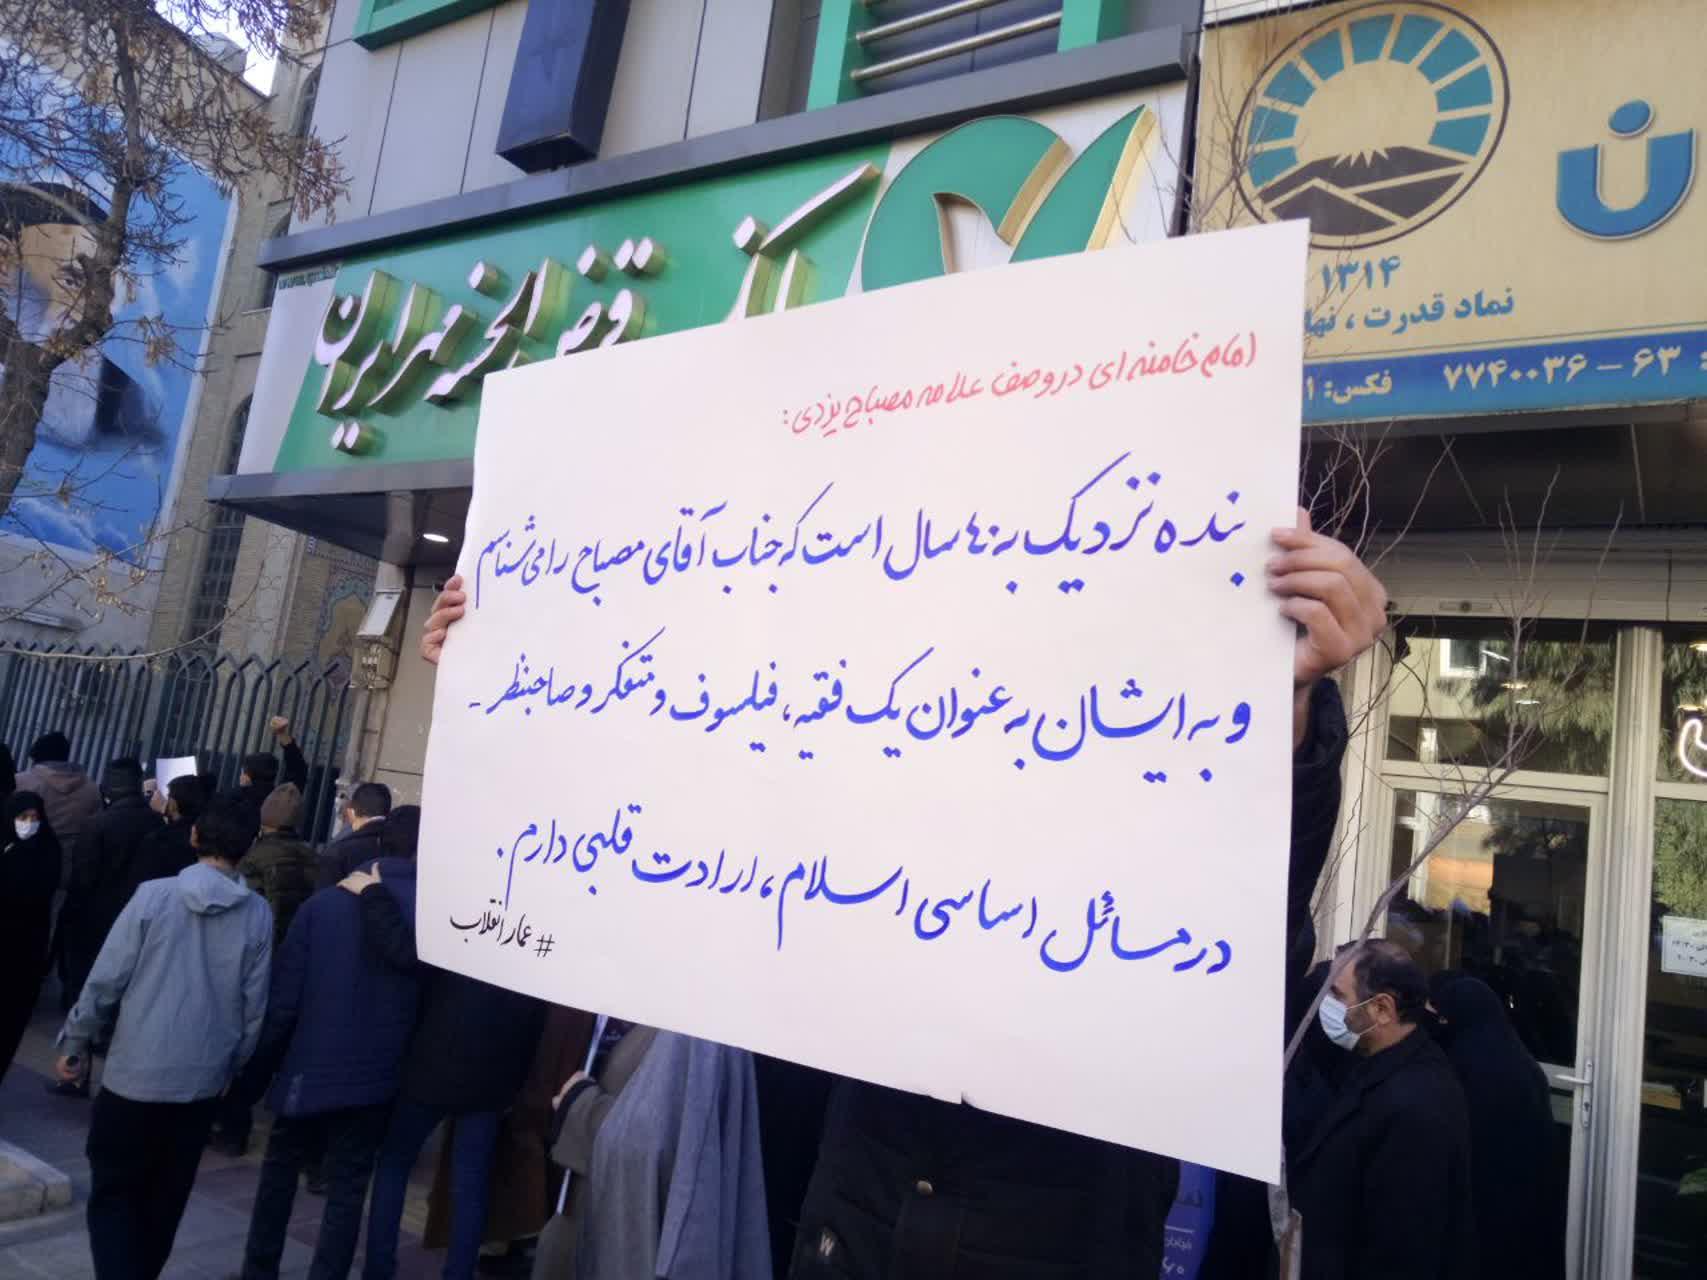 بانک قرض الحسنه مهر ایران
ن
۱۳۱۴
نماد قدرت ، نها
۷۷۴۰۰۳۶ - ۶۳ فکس: ۱
امام خامنه ای در وصف علامه مصباح یزدی:
بنده نزدیک به ۴۰ سال است که جناب آقای مصباح را می شناسم
و به ایشان به عنوان یک فقیه، فیلسوف و متفکر و صاحبنظر -
در مسائل اساسی اسلام، ارادت قلبی دارم.
# عمار انقلاب
W